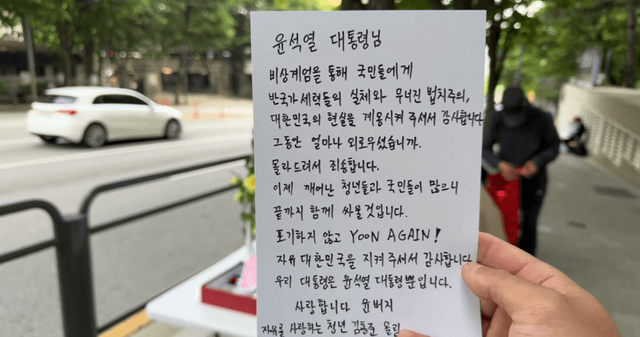 윤석열 대통령님
비상계엄을 통해 국민들에게
반국가세력들의 실체와 무너진 법치주의,
대한민국의 현실을 계몽시켜 주셔서 감사합니다
그동안 얼마나 외로우셨습니까.
몰라드려서 죄송합니다.
이제 깨어난 청년들과 국민들이 많으니
끝까지 함께 싸울것입니다.
포기하지 않고 YOON AGAIN!
자유 대한민국을 지켜주셔서 감사합니다
우리 대통령은 윤석열 대통령뿐입니다.
사랑합니다 윤버지
자유를 사랑하는 청년 김홍준 올림